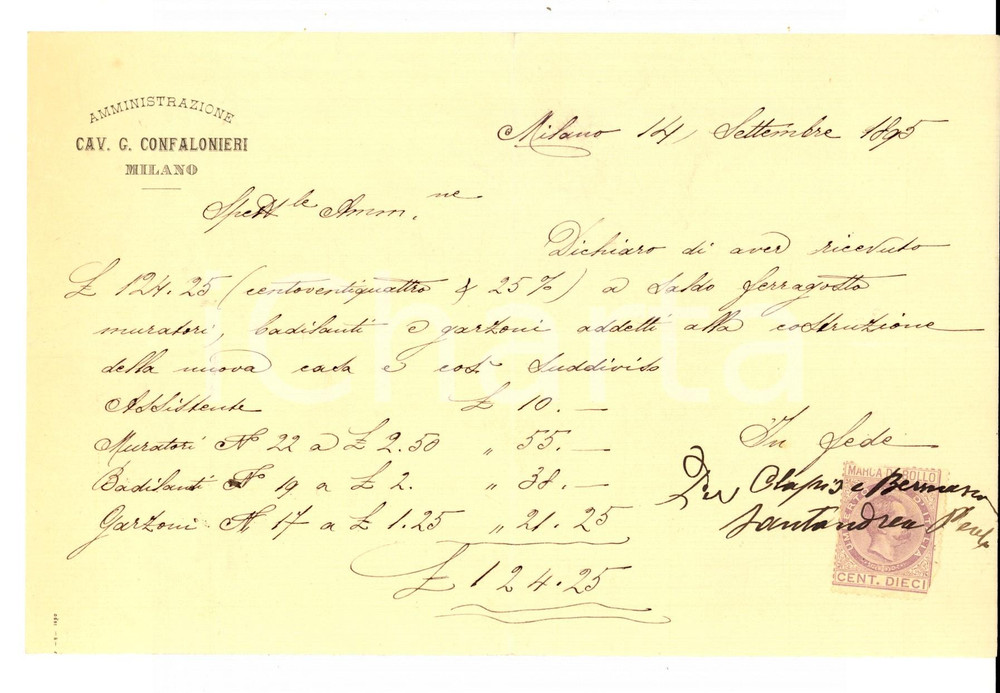 AMMINISTRAZIONE
CAV. G. CONFALONIERI
MILANO
Milano 14, Settembre 1895
Spett.le Amm.ne
Dichiaro di aver ricevuto
£ 124.25 (centoventiquattro & 25%) a saldo ferragosto
muratori, badilanti e garzoni addetti alla costruzione
della nuova casa e così suddiviso
Assistente £ 10.—
Muratori N° 22 a £ 2.50 „ 55.—
Badilanti N° 19 a £ 2. „ 38.—
Garzoni N° 17 a £ 1.25 „ 21.25
£ 124.25
In fede
Per Clapis e
Santandrea
MARCA DA BOLLO
CENT. DIECI
iCharta